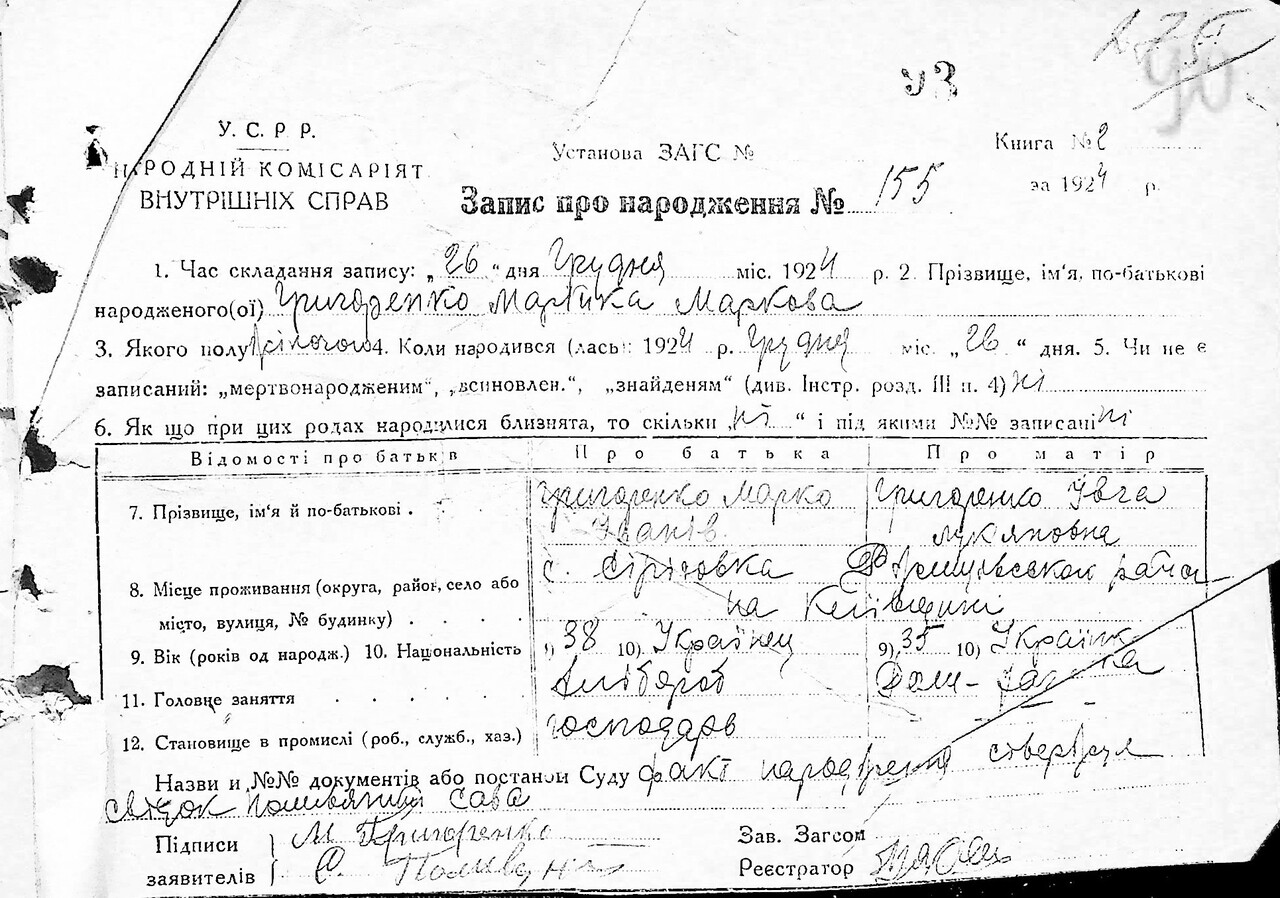 У.С.Р.Р.
НАРОДНІЙ КОМІСАРІЯТ
ВНУТРІШНІХ СПРАВ
Установа ЗАГС №
Запис про народження № 155
Книга № 2
за 1924 р.
1. Час складання запису: „26“ дня Грудня міс. 1924 р. 2. Прізвище, ім'я, по-батькові
народженого(ої) Григоренко Маркова
3. Якого полу 4. Коли народився (лась): 1924 р. Грудня міс. „26“ дня. 5. Чи не є
записаний: „мертвонародженим“, „всиновлен.“, „знайденям“ (див. Інстр. розд. III п. 4) ні
6. Як що при цих родах народилися близнята, то скільки „ні“ і під якими №№ записані ні
Відомості про батьків Про батька Про матір
7. Прізвище, ім'я й по-батькові . Григоренко Марко Іванів Григоренко Лукяновна
8. Місце проживання (округа, район, село або
місто, вулиця, № будинку) . . . . с. району на Київщині
9. Вік (років од народж.) 10. Національність 9) 38 10) Українец 9) 35 10) Українка
11. Головне заняття . . . . . Хлібороб Дом-
12. Становище в промислі (роб., служб., хаз.) господарь
Назви и №№ документів або постанов Суду факт народження ствержує
свідок Сава
Підписи М. Григоренко Зав. Загсом
заявителів С. Реєстратор